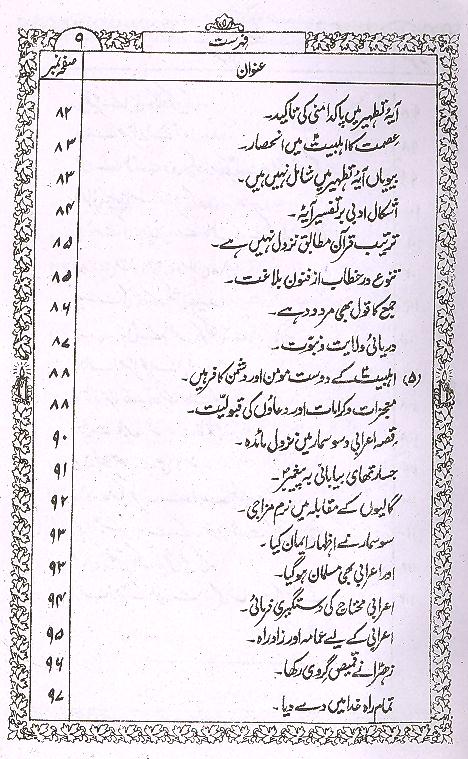 فہرست ۹
عنوان صفحہ نمبر
آیۂ تطہیر میں پاکدامنی کی تاکید۔ ۸۲
عصمت کا اہلبیتؑ میں انحصار۔ ۸۳
بیویاں آیۂ تطہیر میں شامل نہیں ہیں۔ ۸۳
اشکال ادبی بر تفسیر آیۂ۔ ۸۴
ترتیب قرآن مطابق نزول نہیں ہے۔ ۸۵
تنوع در خطاب از فنون بلاغت۔ ۸۵
جمع کا قول بھی مردود ہے۔ ۸۶
دریائی ولایت و نبوت۔ ۸۷
(۵) اہلبیتؑ کے دوست مومن اور دشمن کافر ہیں۔ ۸۸
معجزات و کرامات اور دعاؤں کی قبولیت۔ ۸۸
قصہ اعرابی و سوسمار میں نزول مائدہ۔ ۹۰
جسارتھای بیابانی بہ پیغمبرؐ۔ ۹۱
گالیوں کے مقابلہ میں نرم مزاجی۔ ۹۲
سوسمار نے اظہار ایمان کیا۔ ۹۳
اور اعرابی بھی مسلمان ہو گیا۔ ۹۳
اعرابی محتاج کی دستگیری فرمائی۔ ۹۴
اعرابی کے لیے عمامہ اور زاد راہ۔ ۹۵
زھراؑ نے قمیص گروی رکھا۔ ۹۶
تمام راہ خدا میں دے دیا۔ ۹۷